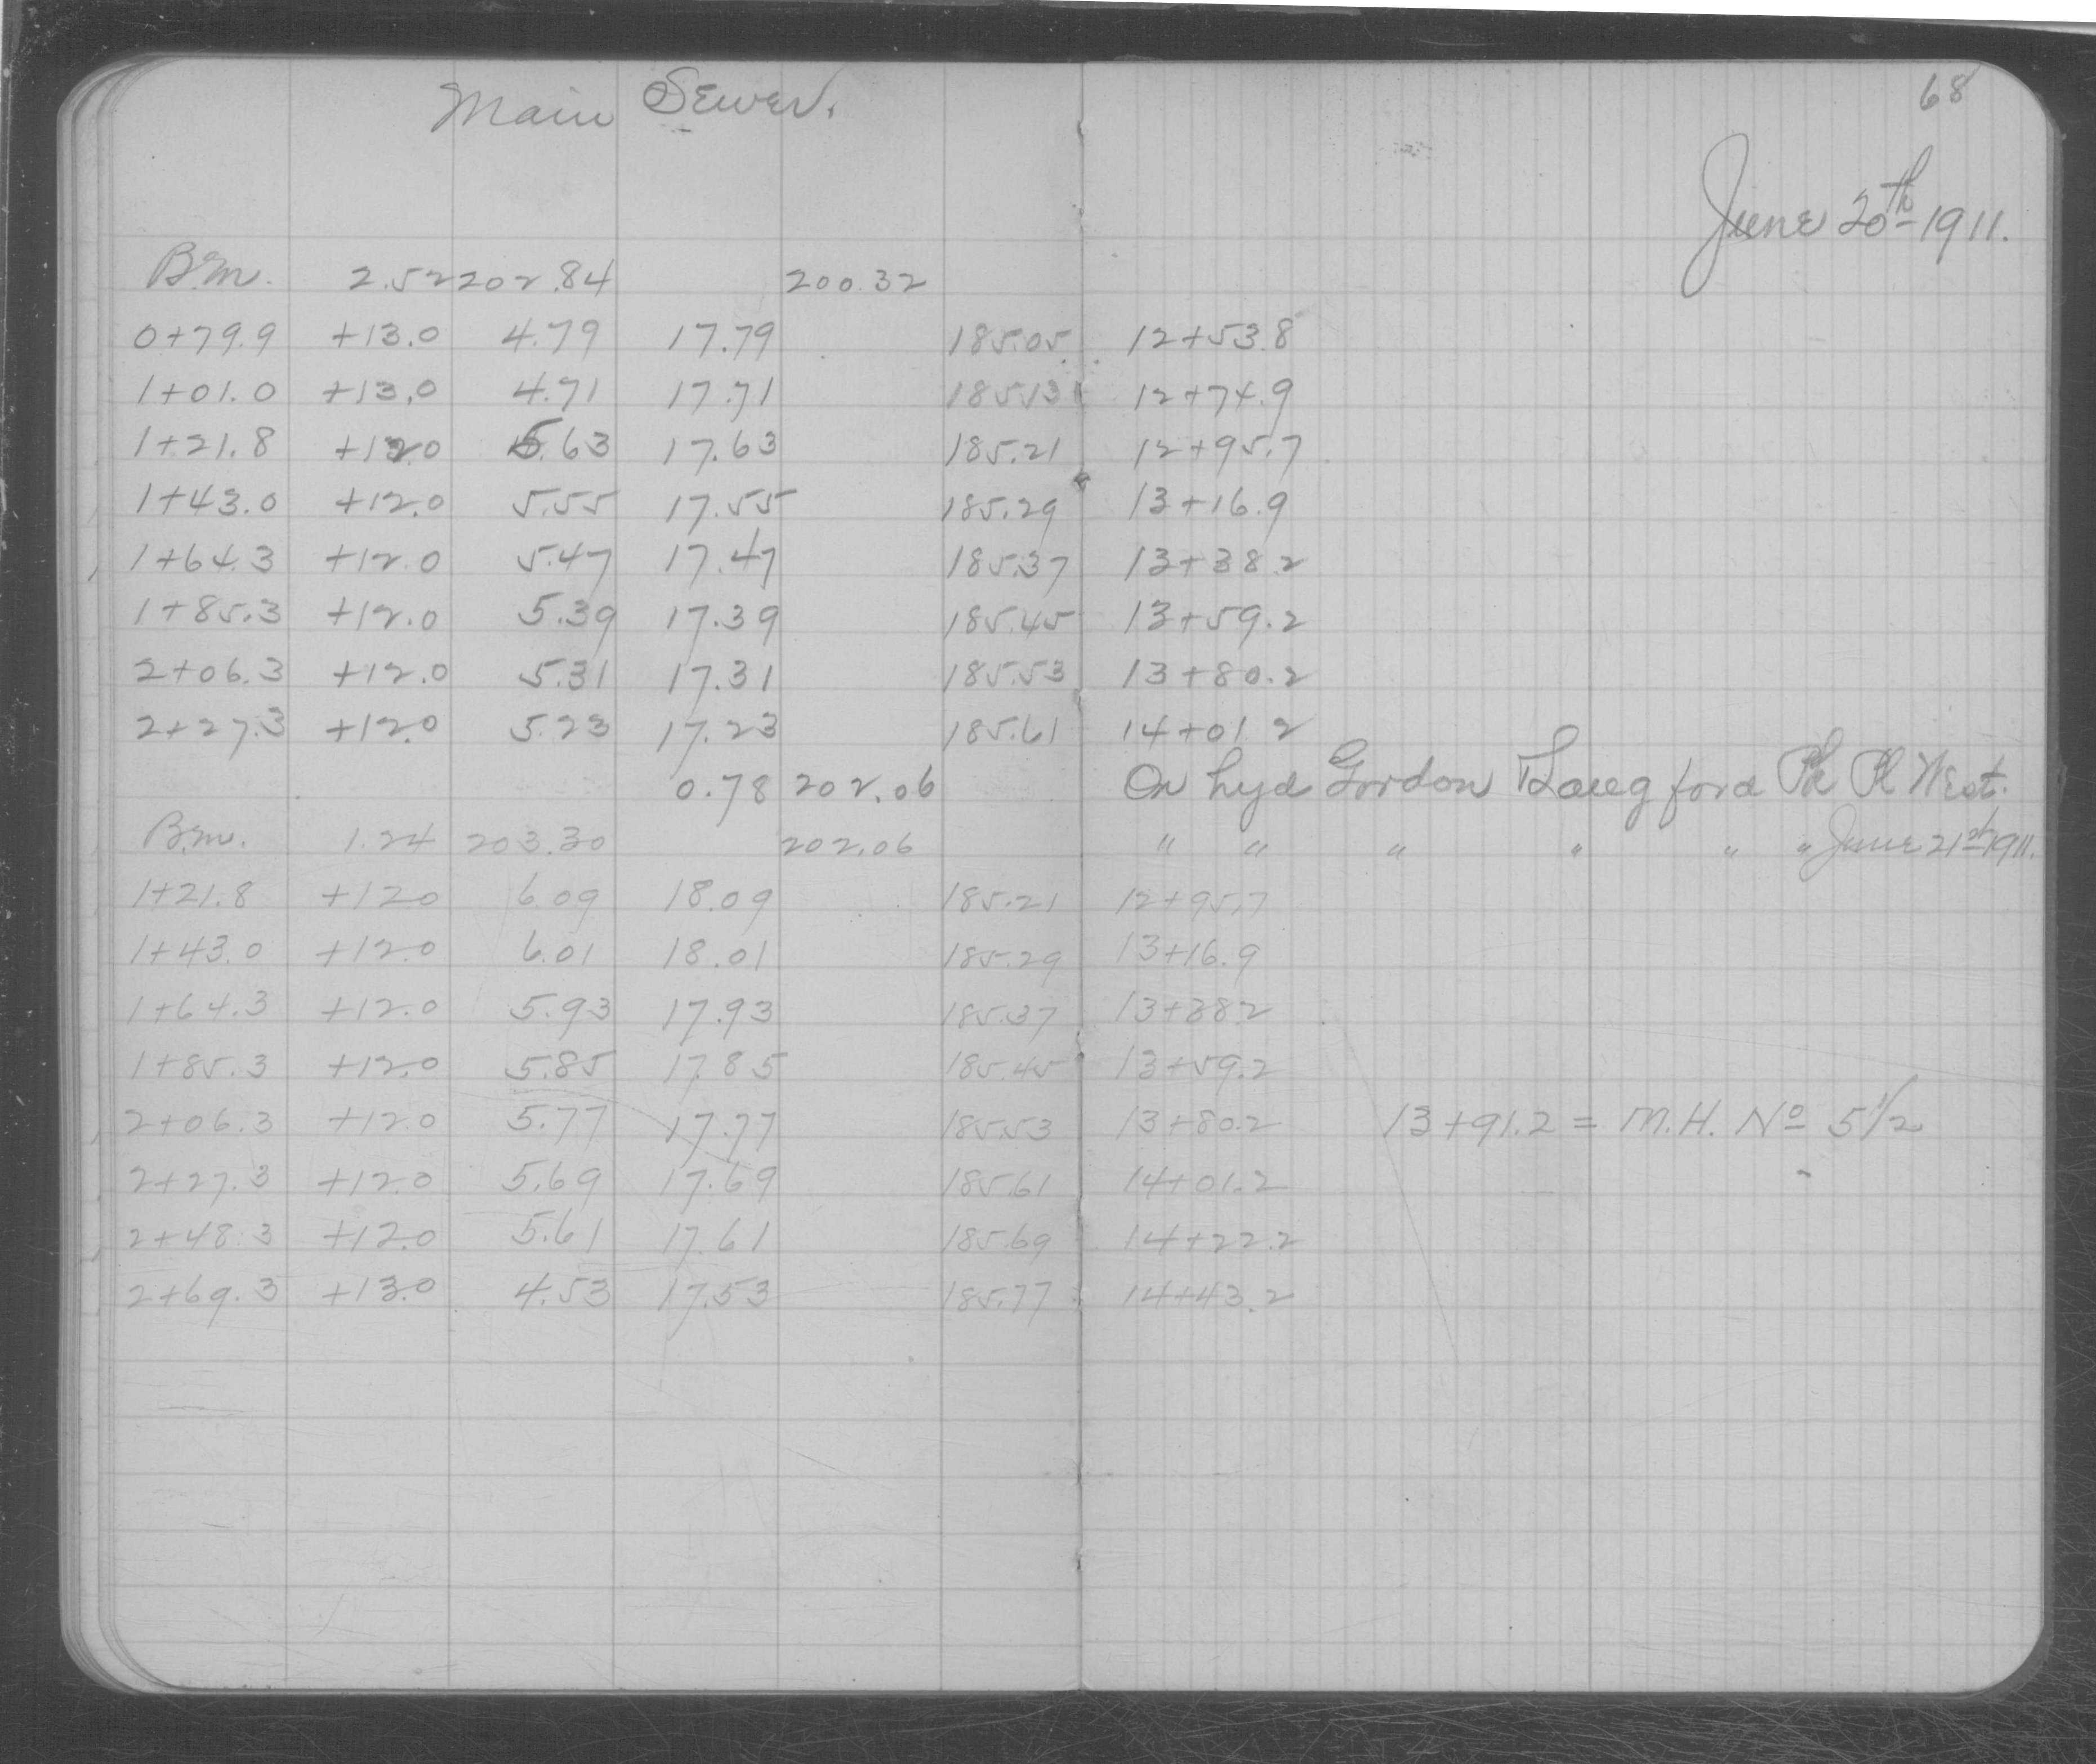 Main Sewer.
68
June 20th 1911.
B.M. 2.52 202.84 200.32
0+79.9 +13.0 4.79 17.79 185.05 12+53.8
1+01.0 +13.0 4.71 17.71 185.13 12+74.9
1+21.8 +12.0 5.63 17.63 185.21 12+95.7
1+43.0 +12.0 5.55 17.55 185.29 13+16.9
1+64.3 +12.0 5.47 17.47 185.37 13+38.2
1+85.3 +12.0 5.39 17.39 185.45 13+59.2
2+06.3 +12.0 5.31 17.31 185.53 13+80.2
2+27.3 +12.0 5.23 17.23 185.61 14+01.2
0.78 202.06 On hyd Gordon & Langford Pk Pl West.
B.M. 1.24 203.30 202.06 " " " " " " June 21st 1911.
1+21.8 +12.0 6.09 18.09 185.21 12+95.7
1+43.0 +12.0 6.01 18.01 185.29 13+16.9
1+64.3 +12.0 5.93 17.93 185.37 13+38.2
1+85.3 +12.0 5.85 17.85 185.45 13+59.2
2+06.3 +12.0 5.77 17.77 185.53 13+80.2 13+91.2 = M.H. No 5 1/2
2+27.3 +12.0 5.69 17.69 185.61 14+01.2
2+48.3 +12.0 5.61 17.61 185.69 14+22.2
2+69.3 +13.0 4.53 17.53 185.77 14+43.2